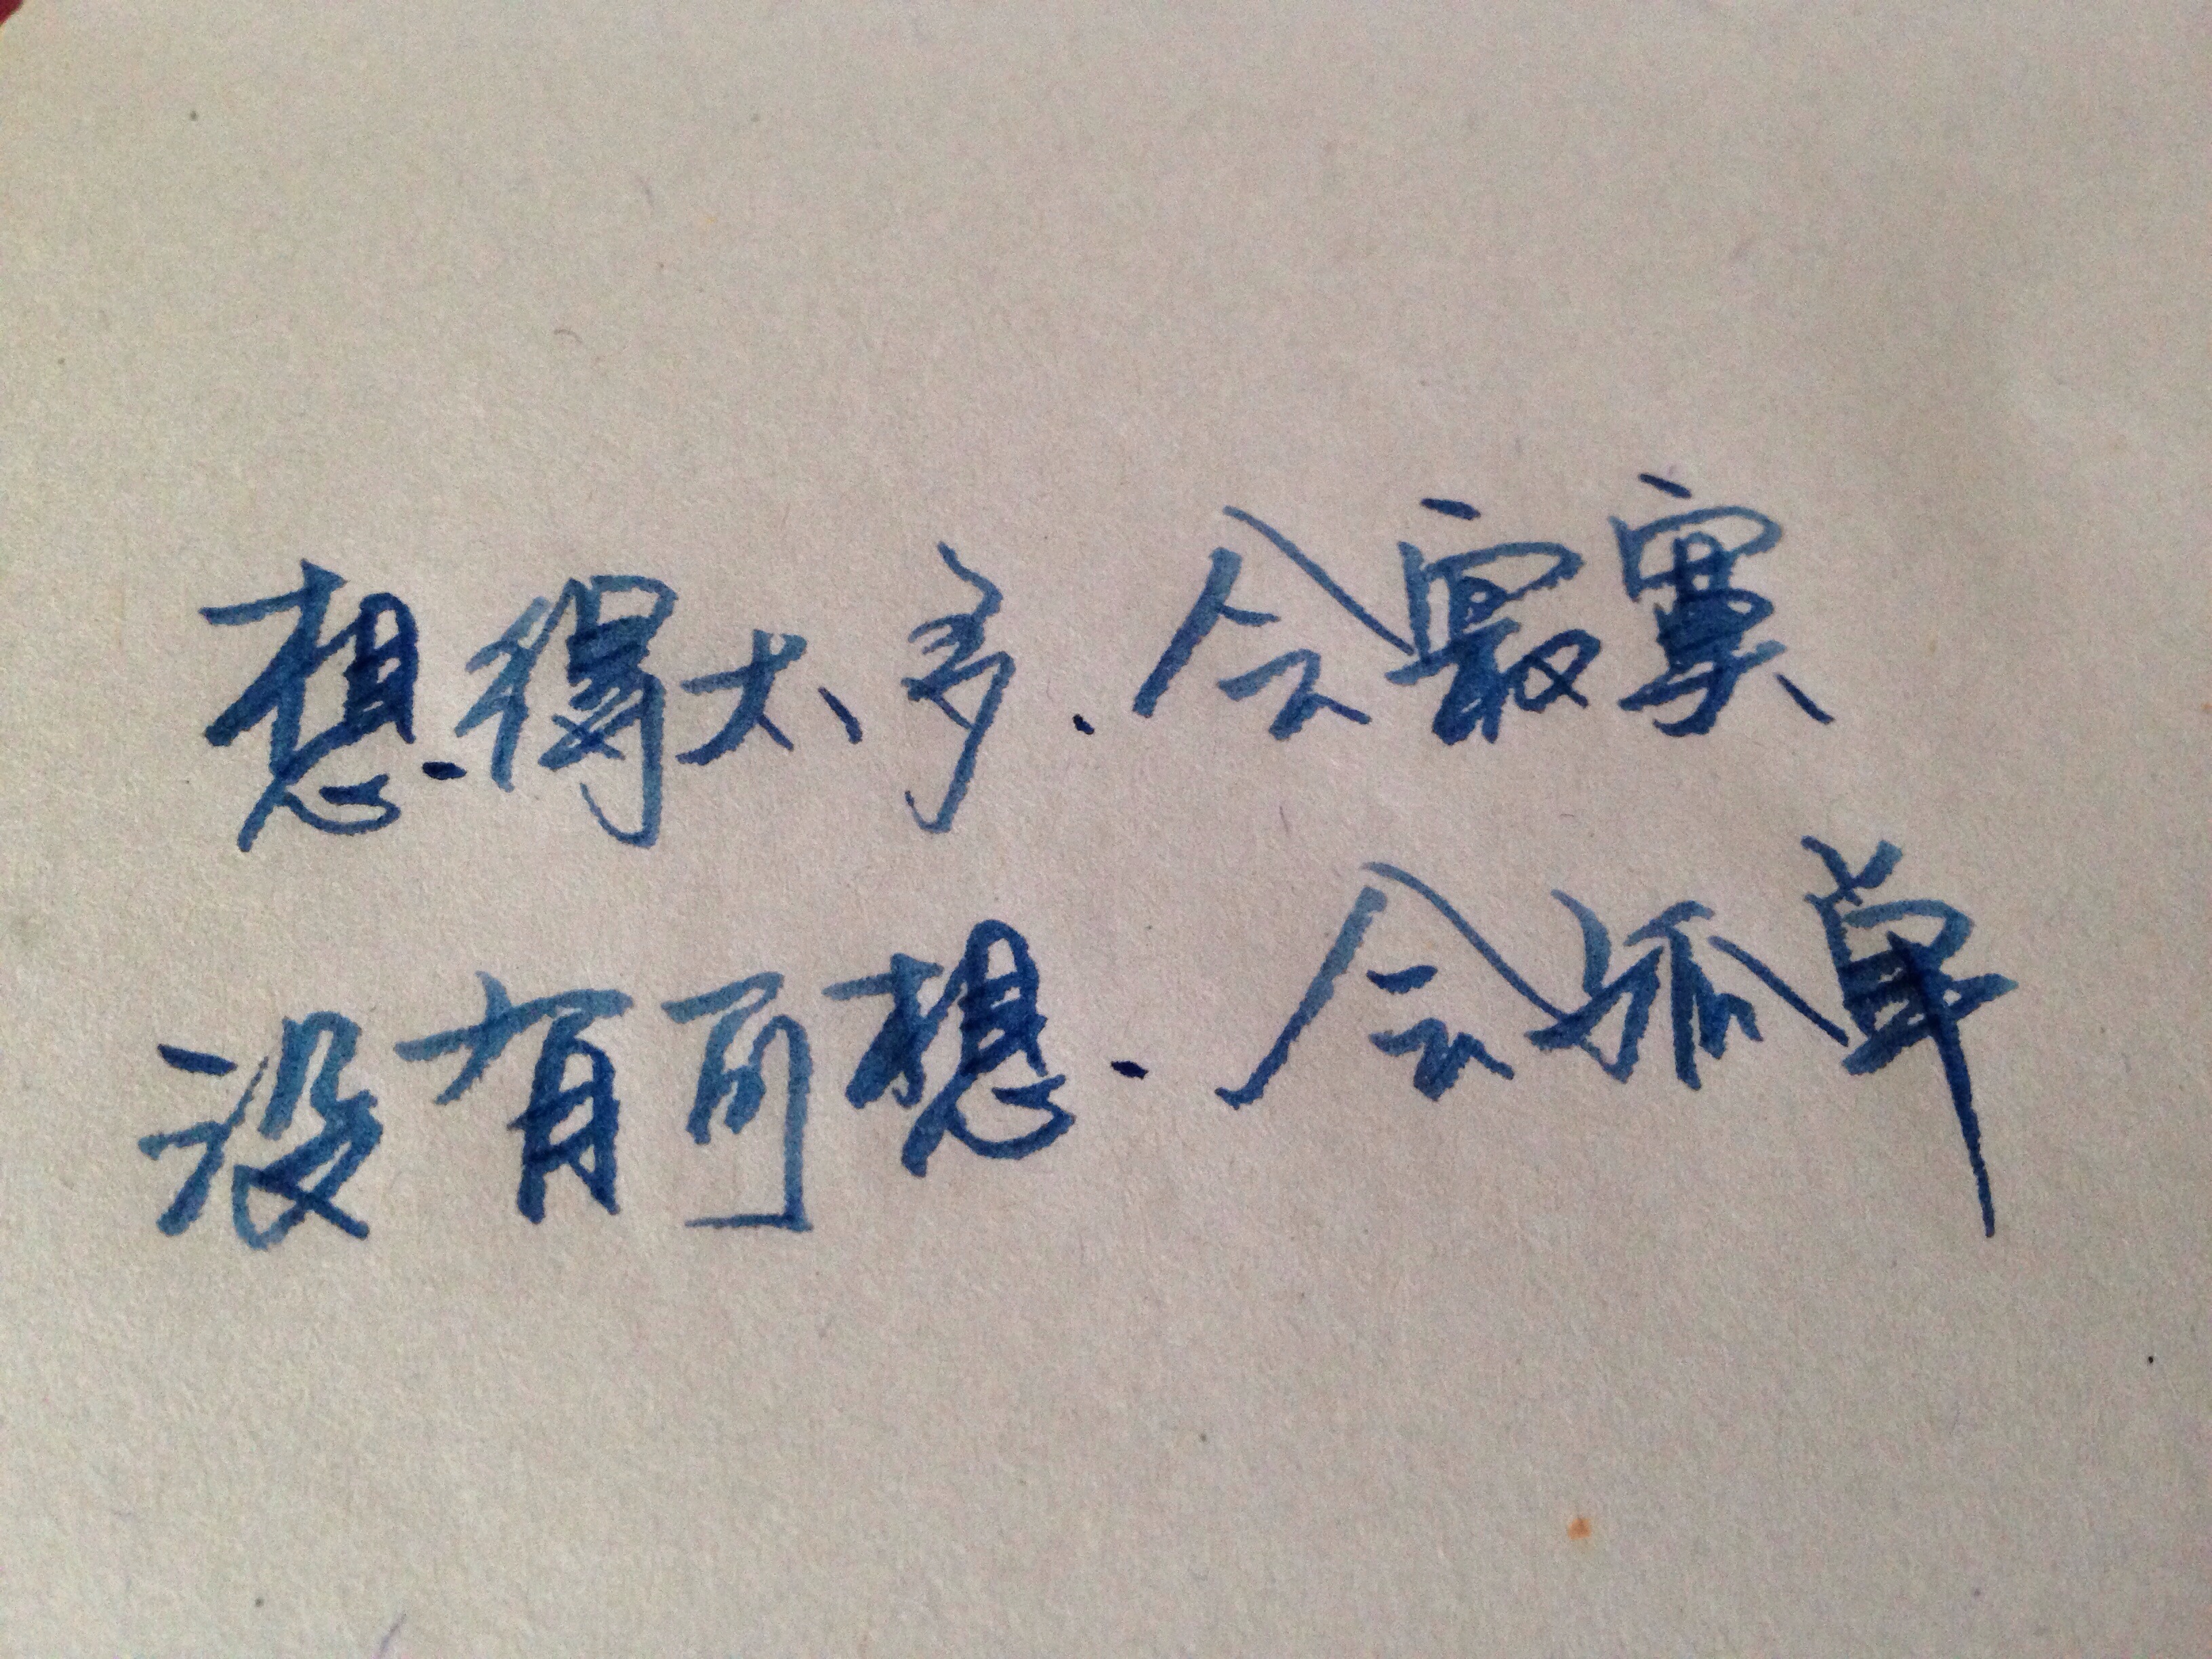 想得太多.会寂寞
没有可想.会孤单